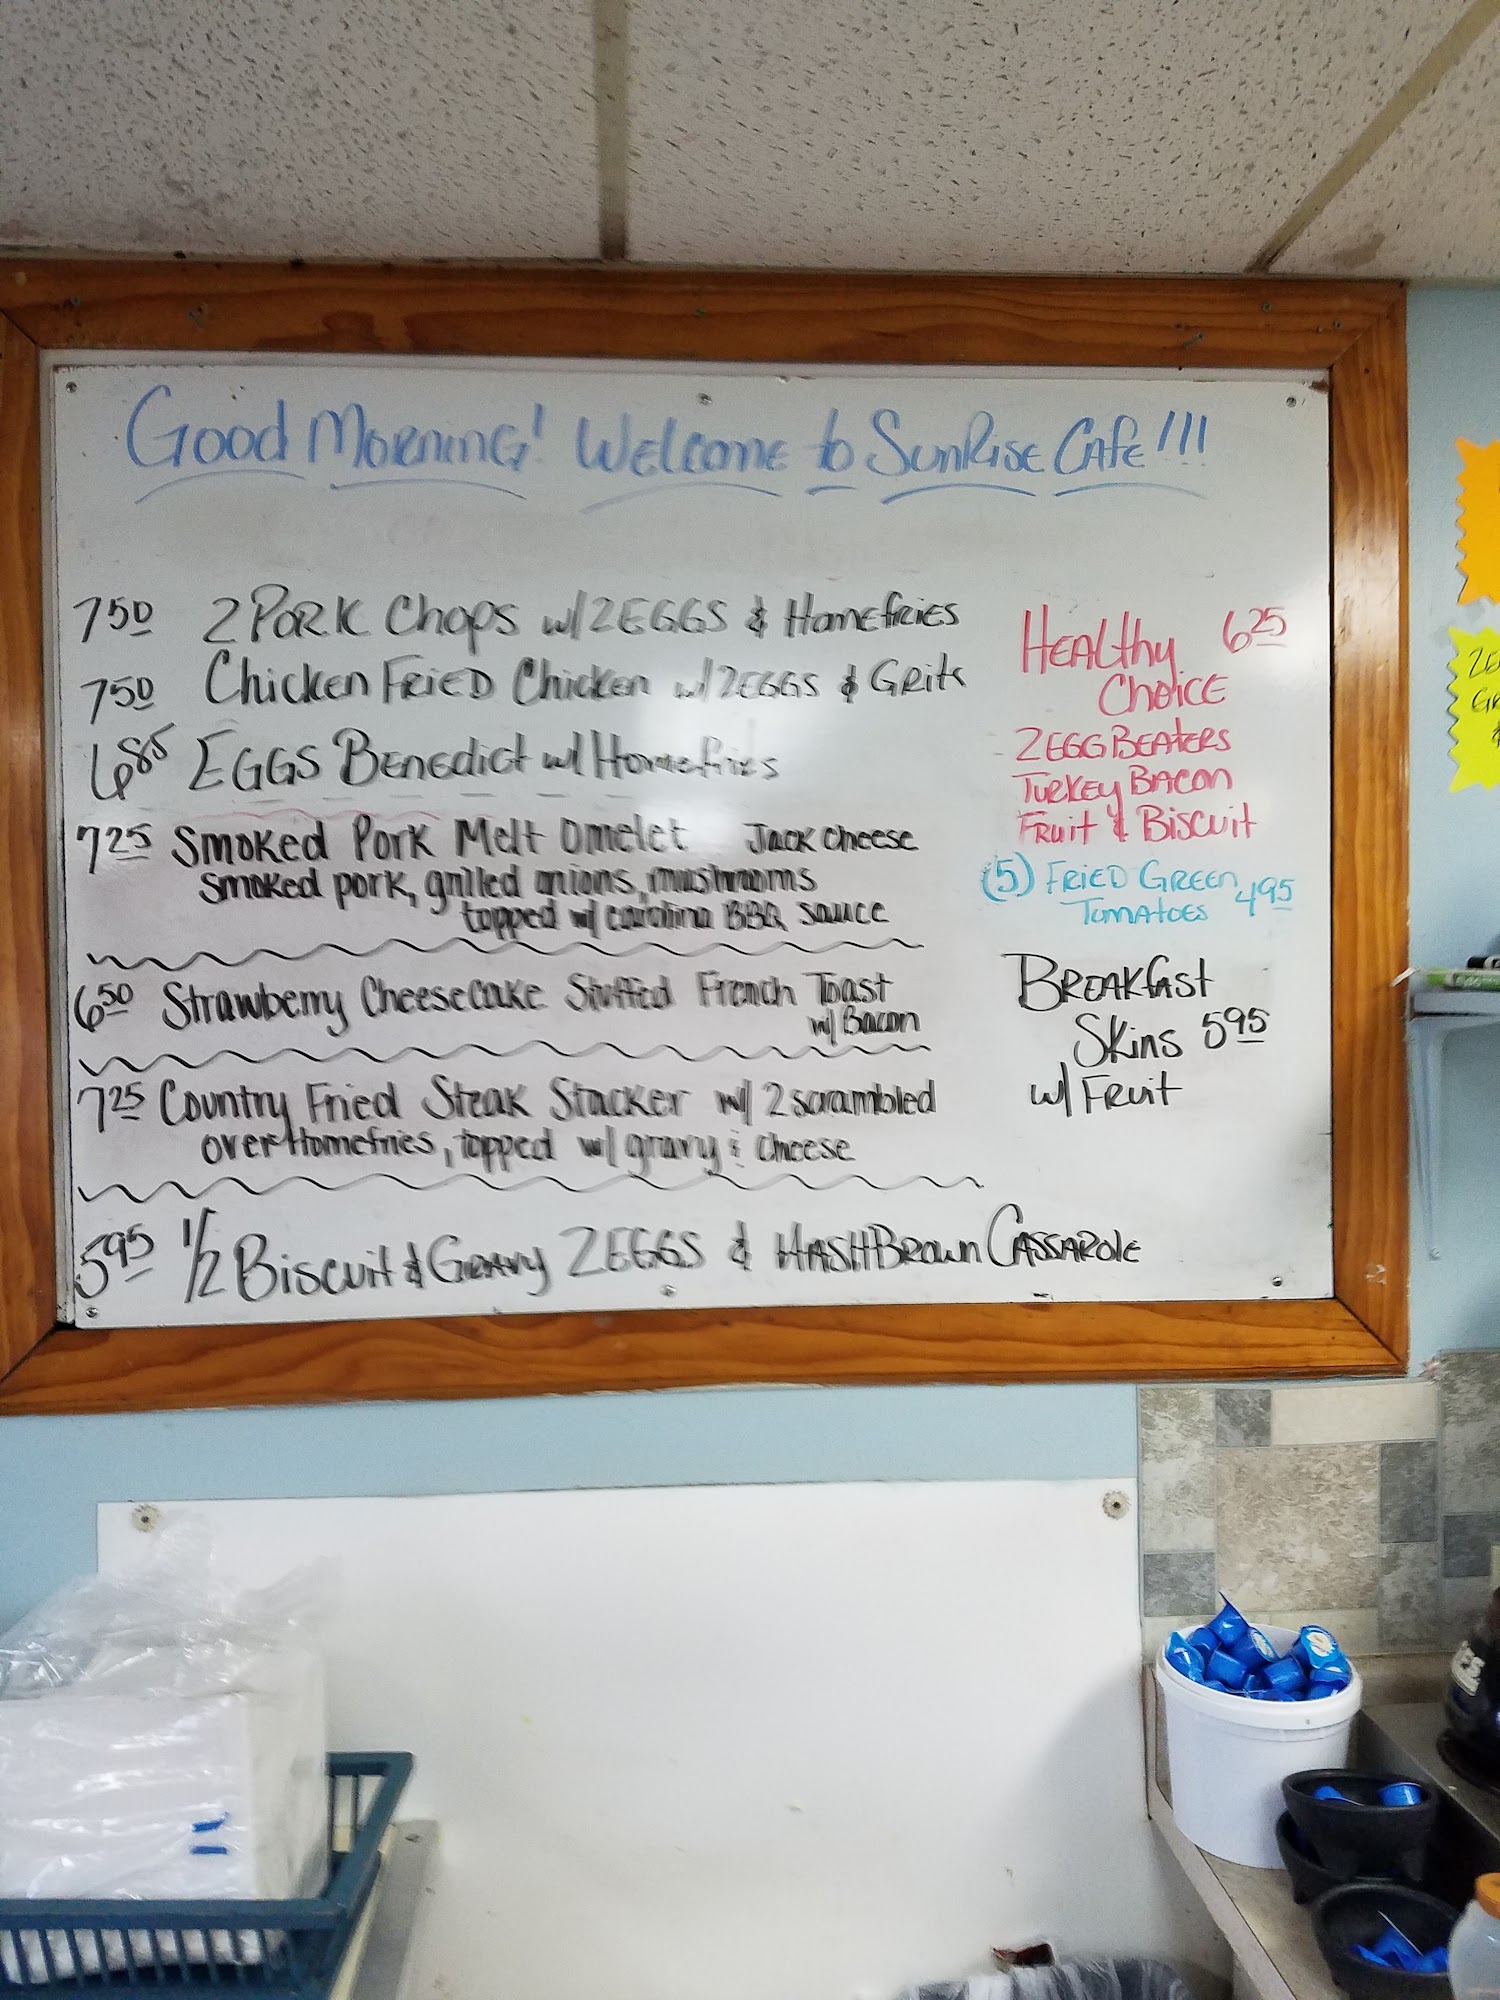 Good Morning! Welcome to Sunrise Cafe!!!
7.50 2 Pork Chops w/ 2 EGGS & Homefries
7.50 Chicken Fried Chicken w/ 2 EGGS & Grits
6.85 EGGS Benedict w/ Homefries
7.25 Smoked Pork Melt Omelet Jack Cheese
smoked pork, grilled onions, mushrooms
topped w/ carolina BBQ sauce
6.50 Strawberry Cheesecake Stuffed French Toast
w/ Bacon
7.25 Country Fried Steak Stacker w/ 2 scrambled
over Homefries, topped w/ gravy & cheese
5.95 1/2 Biscuit & Gravy 2 EGGS & HashBrown Cassarole
Healthy 6.25
Choice
2 EGG BEATERS
Turkey Bacon
Fruit & Biscuit
(5) Fried Green
Tomatoes 4.95
Breakfast
Skins 5.95
w/ Fruit